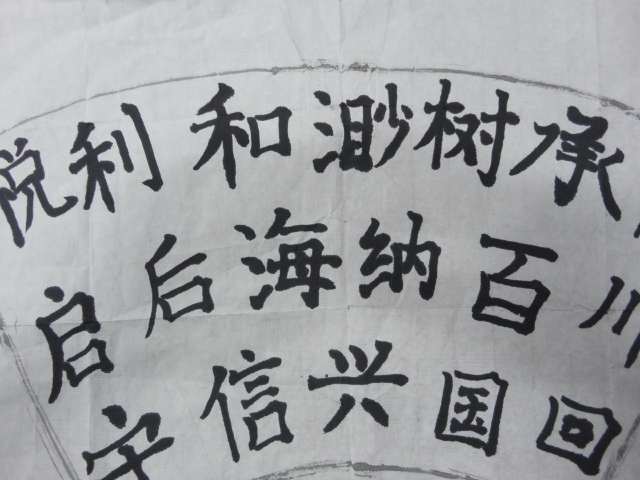 利和渺树承
启后海纳百川
守信兴国回